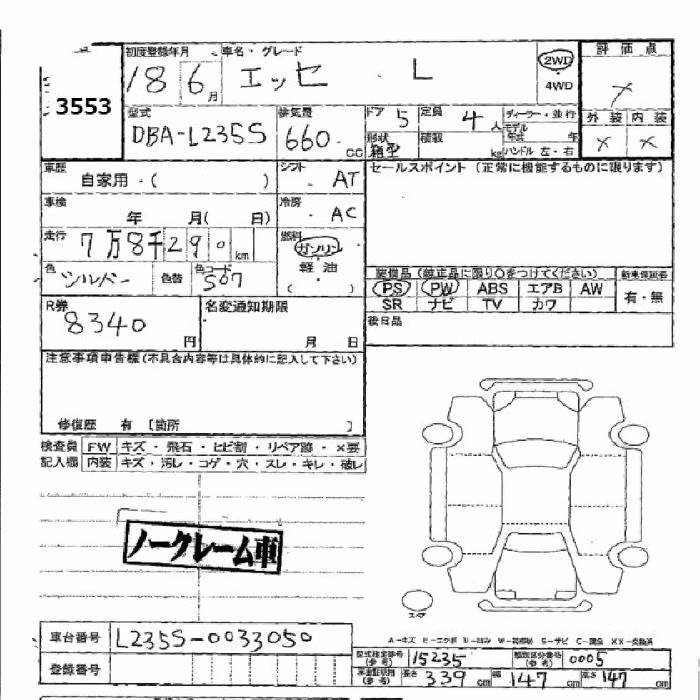 初度登録年月 車名・グレード 2WD 評価点
3553 18 6月 エッセ . L 4WD X
型式 排気量 ドア 定員 ディーラー・並行 外装 内装
DBA-L235S 660. cc 5 4人 モデル 年 X X
形状 箱型 積載 kg ハンドル 左・右
車歴 シフト セールスポイント (正常に機能するものに限ります)
自家用・( ) AT
車検 年 月( 日) 冷房 AC
走行 7万8千290km 燃料 ガソリン
軽油
( )
色 シルバー 色替 色コード S07
装備品 (純正品に限り○をつけてください) 新車保証書
PS PW ABS エアB AW 有・無
SR ナビ TV カワ
R券 名変通知期限 後日品
8340 円 月 日
注意事項申告欄(不具合内容等は具体的に記入して下さい)
修復歴 有 〔箇所 〕
検査員 FW キズ・飛石・ヒビ割・リペア跡・×要
記入欄 内装 キズ・汚レ・コゲ・穴・スレ・キレ・破レ
ノークレーム車
車台番号 L235S-0033050
A-キズ E-エクボ S-サビ C-腐食 XX-交換済
型式指定番号 (参考) 15235 類別区分番号 (参考) 0005
登録番号
(参考) 長さ 339 cm 幅 147 cm 高さ 147 cm